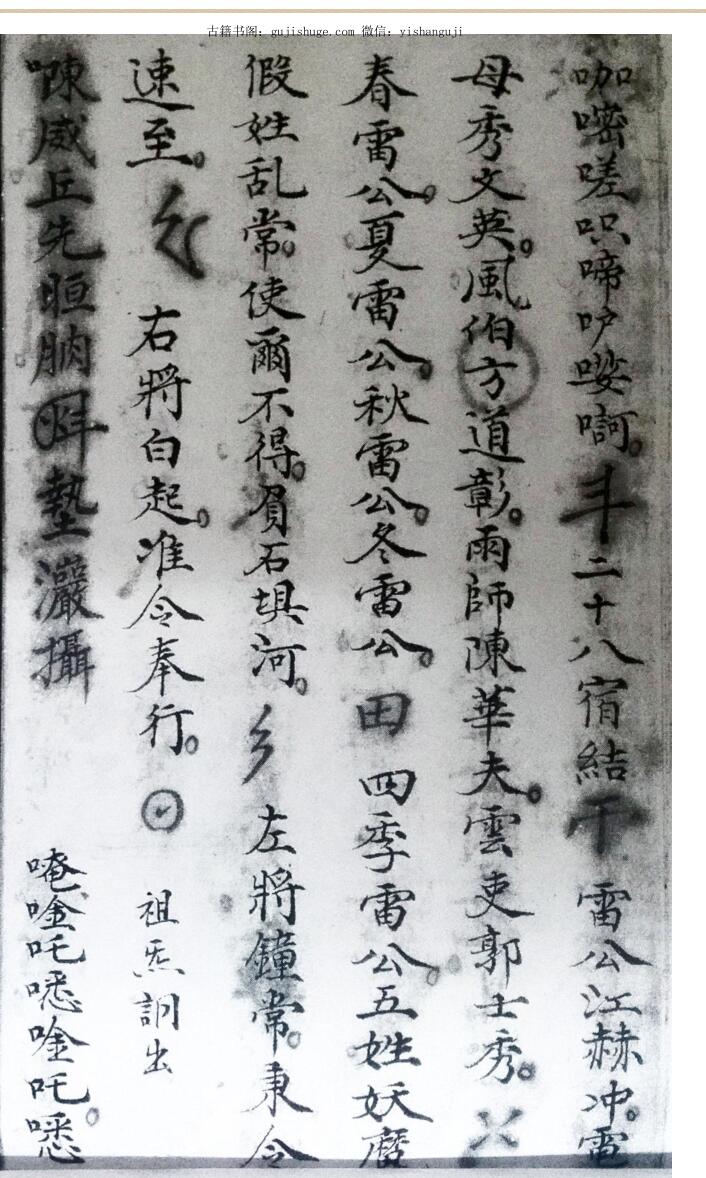 古籍书阁：gujishuge.com 微信：yishanguji
咖嘧嗟呎啼㕆啊。斗二十八宿結干雷公江赫冲。電
母秀文英。風伯方道彰。雨師陳華夫。雲吏郭士秀。
春雷公。夏雷公。秋雷公。冬雷公。田四季雷公。五姓妖魔
假姓乱常。使爾不得。負石填河。左將鐘常。秉令
速至。右將白起。准令奉行。祖炁訓出
㖦威丘先晅朒墊灝攝
唵唫吒㗭唫吒。㗭